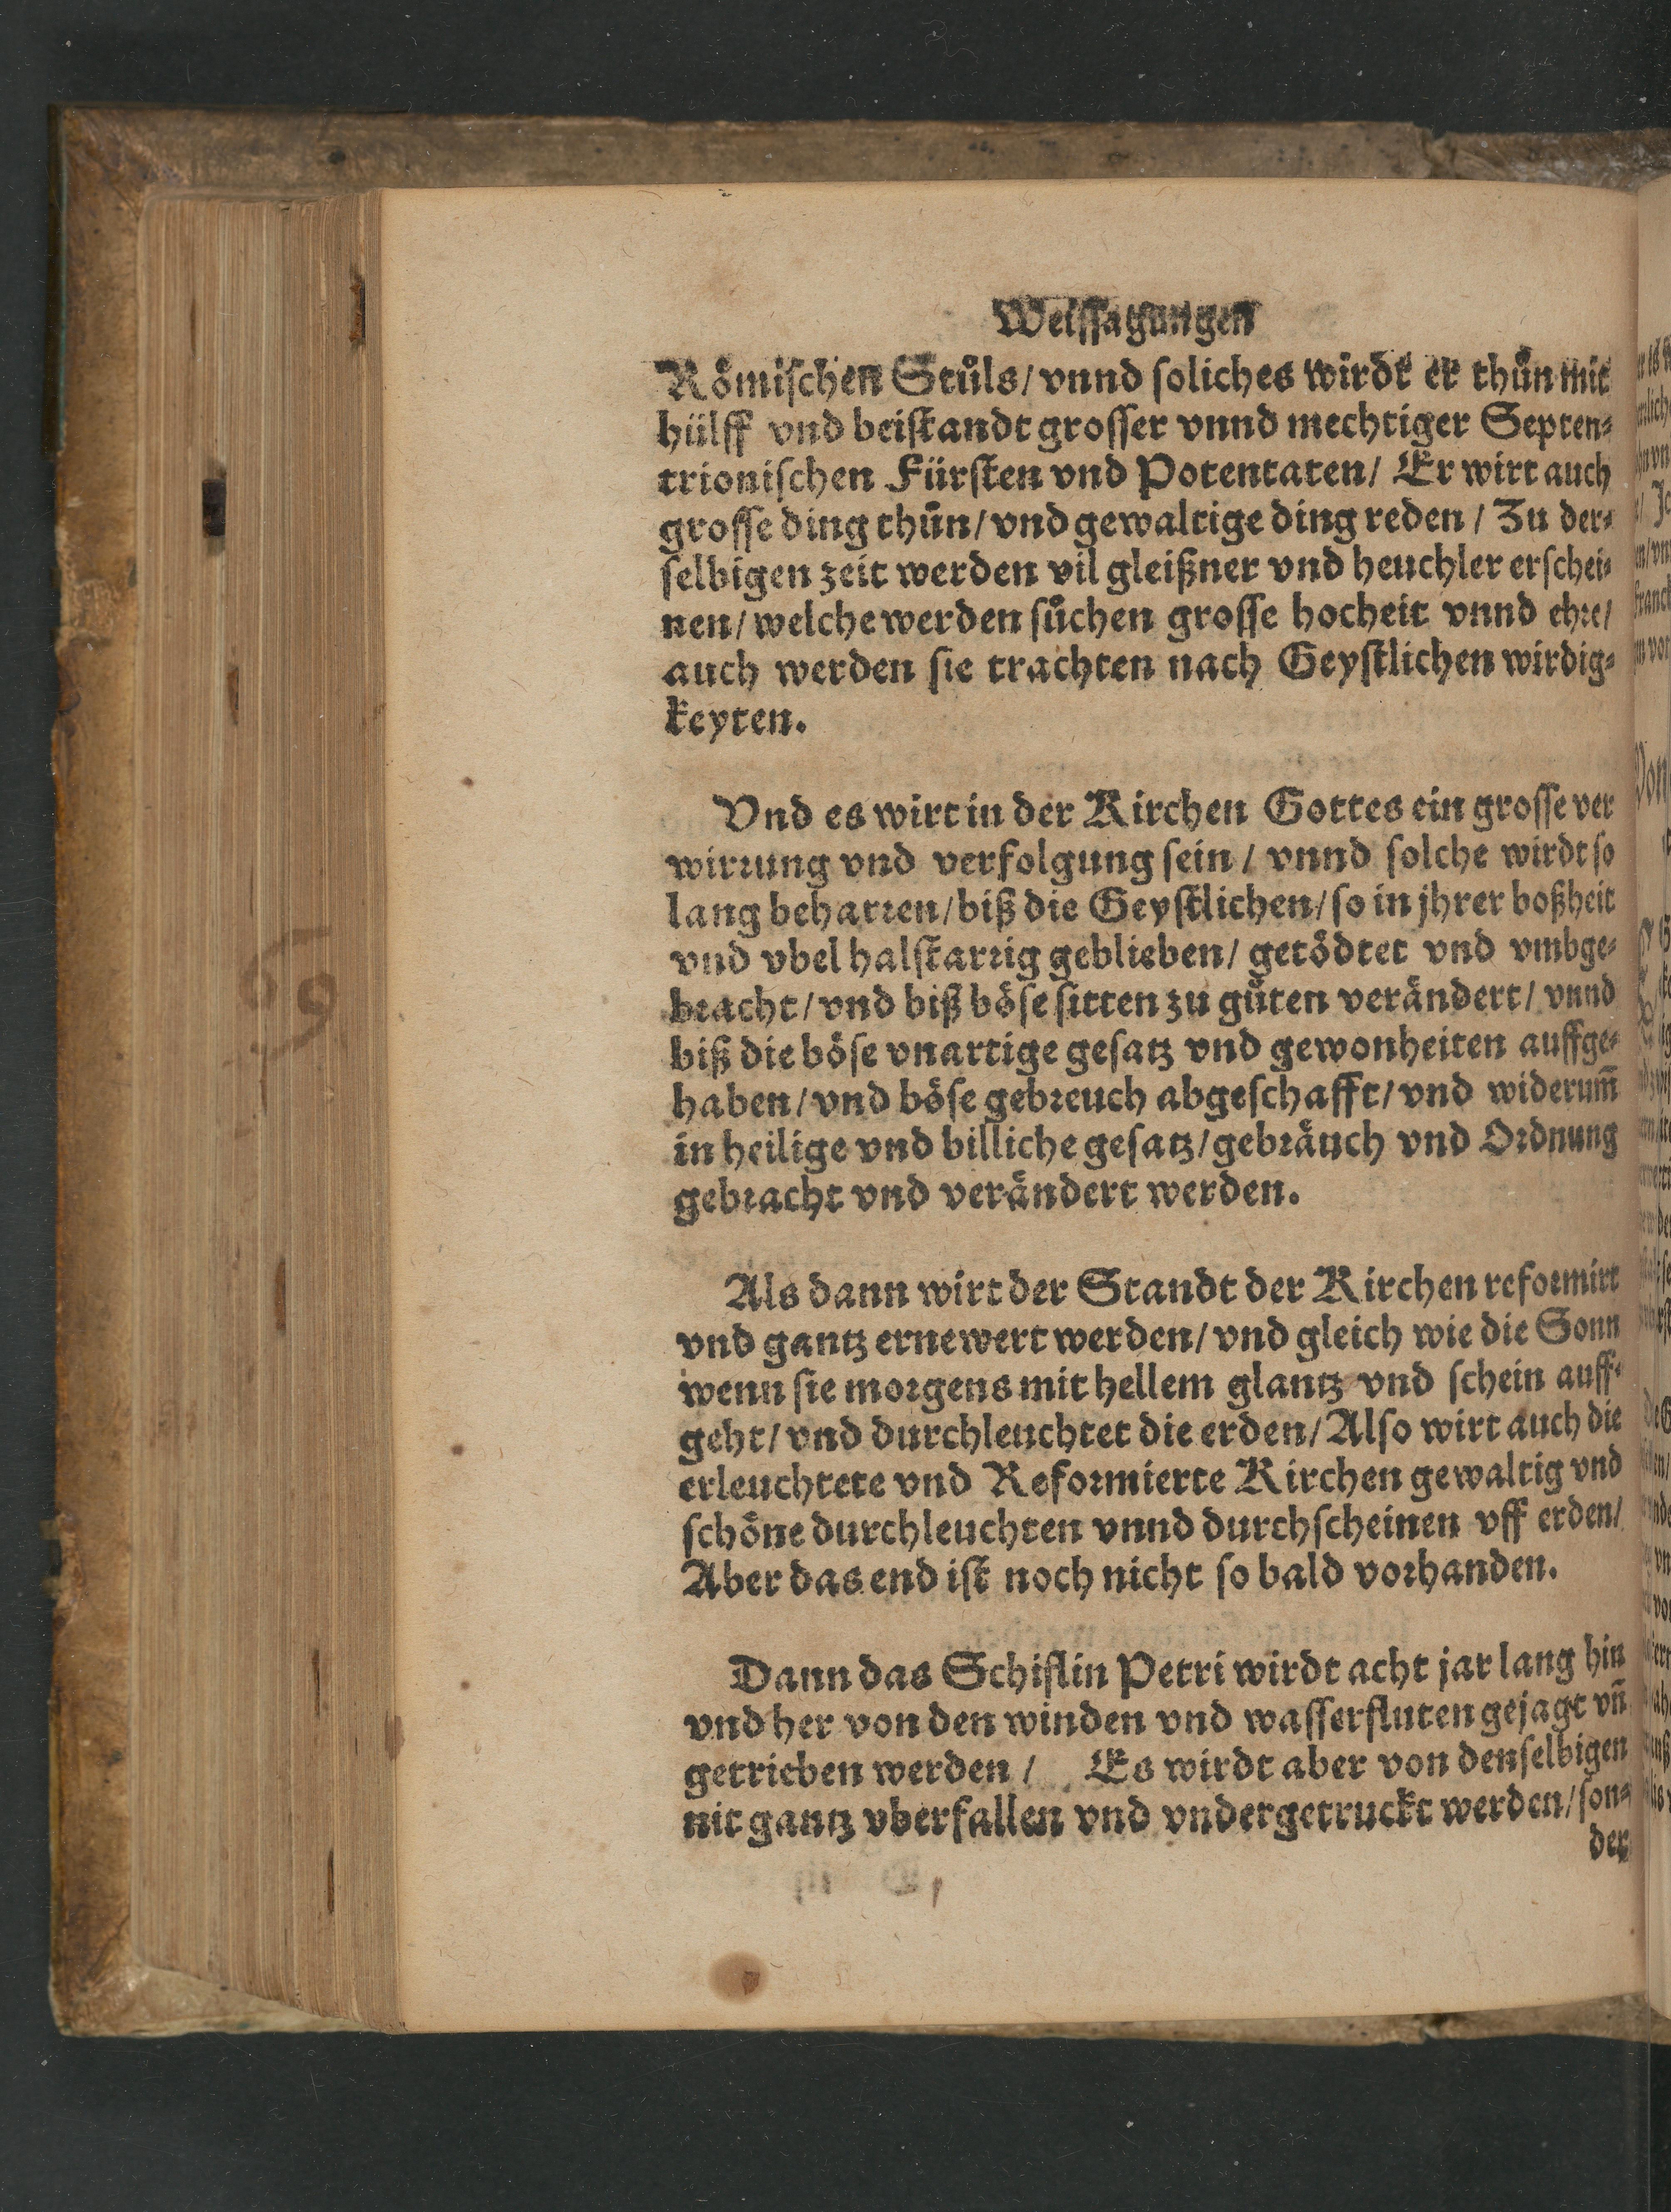 Weissagungen
Römischen Stůls/ vnnd soliches wirdt er thůn mit
hülff vnd beistandt grosser vnnd mechtiger Septen⸗
trionischen Fürsten vnd Potentaten/ Er wirt auch
grosse ding thůn/ vnd gewaltige ding reden / Zu der⸗
selbigen zeit werden vil gleißner vnd heuchler erschei⸗
nen/ welche werden sůchen grosse hocheit vnnd ehre/
auch werden sie trachten nach Geystlichen wirdig⸗
keyten.
Vnd es wirt in der Kirchen Gottes ein grosse ver
wirrung vnd verfolgung sein / vnnd solche wirdt so
lang beharren/ biß die Geystlichen/ so in jhrer boßheit
vnd vbel halstarrig geblieben/ getödtet vnd vmbge⸗
bracht/ vnd biß böse sitten zu gůten verändert/ vnnd
biß die böse vnartige gesatz vnd gewonheiten auffge⸗
haben/ vnd böse gebreuch abgeschafft/ vnd widerum̄
in heilige vnd billiche gesatz/ gebräuch vnd Ordnung
gebracht vnd verändert werden.
Als dann wirt der Standt der Kirchen reformirt
vnd gantz ernewert werden/ vnd gleich wie die Sonn
wenn sie morgens mit hellem glantz vnd schein auff⸗
geht/ vnd durchleuchtet die erden/ Also wirt auch die
erleuchtete vnd Reformierte Kirchen gewaltig vnd
schöne durchleuchten vnnd durchscheinen vff erden/
Aber das end ist noch nicht so bald vorhanden.
Dann das Schiflin Petri wirdt acht jar lang hin
vnd her von den winden vnd wasserfluten gejagt vn̄
getrieben werden / Es wirdt aber von denselbigen
nit gantz vberfallen vnd vndergetruckt werden/ son⸗
der
69